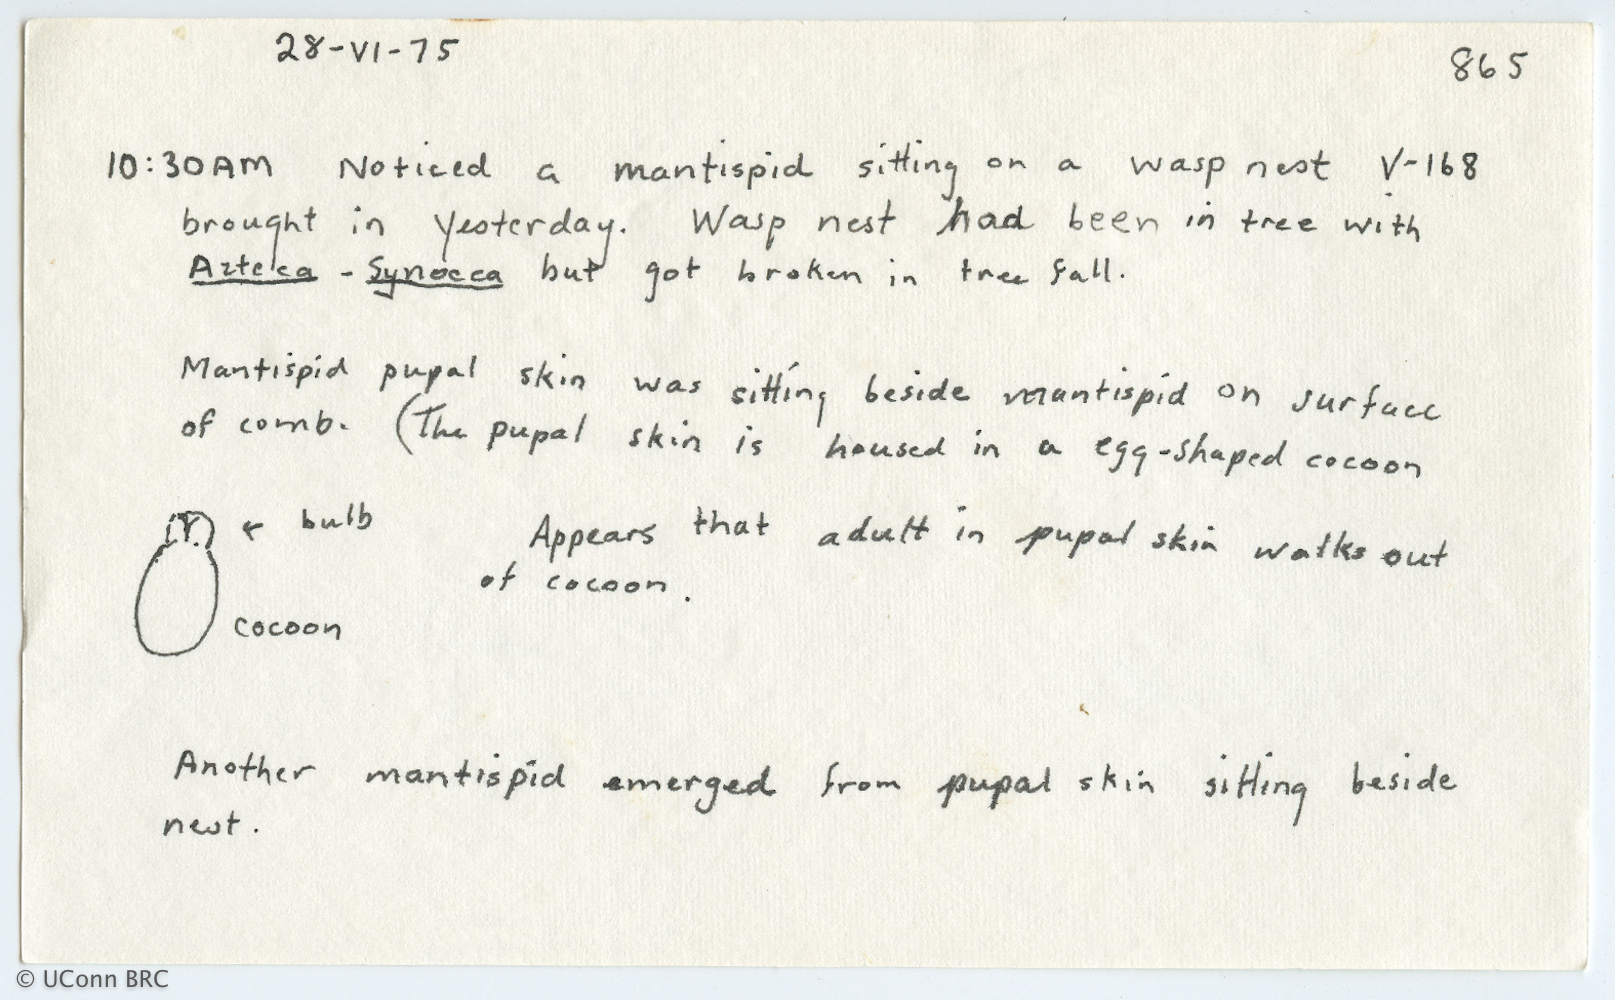 28-VI-75
865
10:30AM Noticed a mantispid sitting on a wasp nest V-168
brought in yesterday. Wasp nest had been in tree with
Azteca - Synoeca but got broken in tree fall.
Mantispid pupal skin was sitting beside mantispid on surface
of comb. (The pupal skin is housed in a egg-shaped cocoon
← bulb
Appears that adult in pupal skin walks out
of cocoon.
cocoon
Another mantispid emerged from pupal skin sitting beside
nest.
© UConn BRC